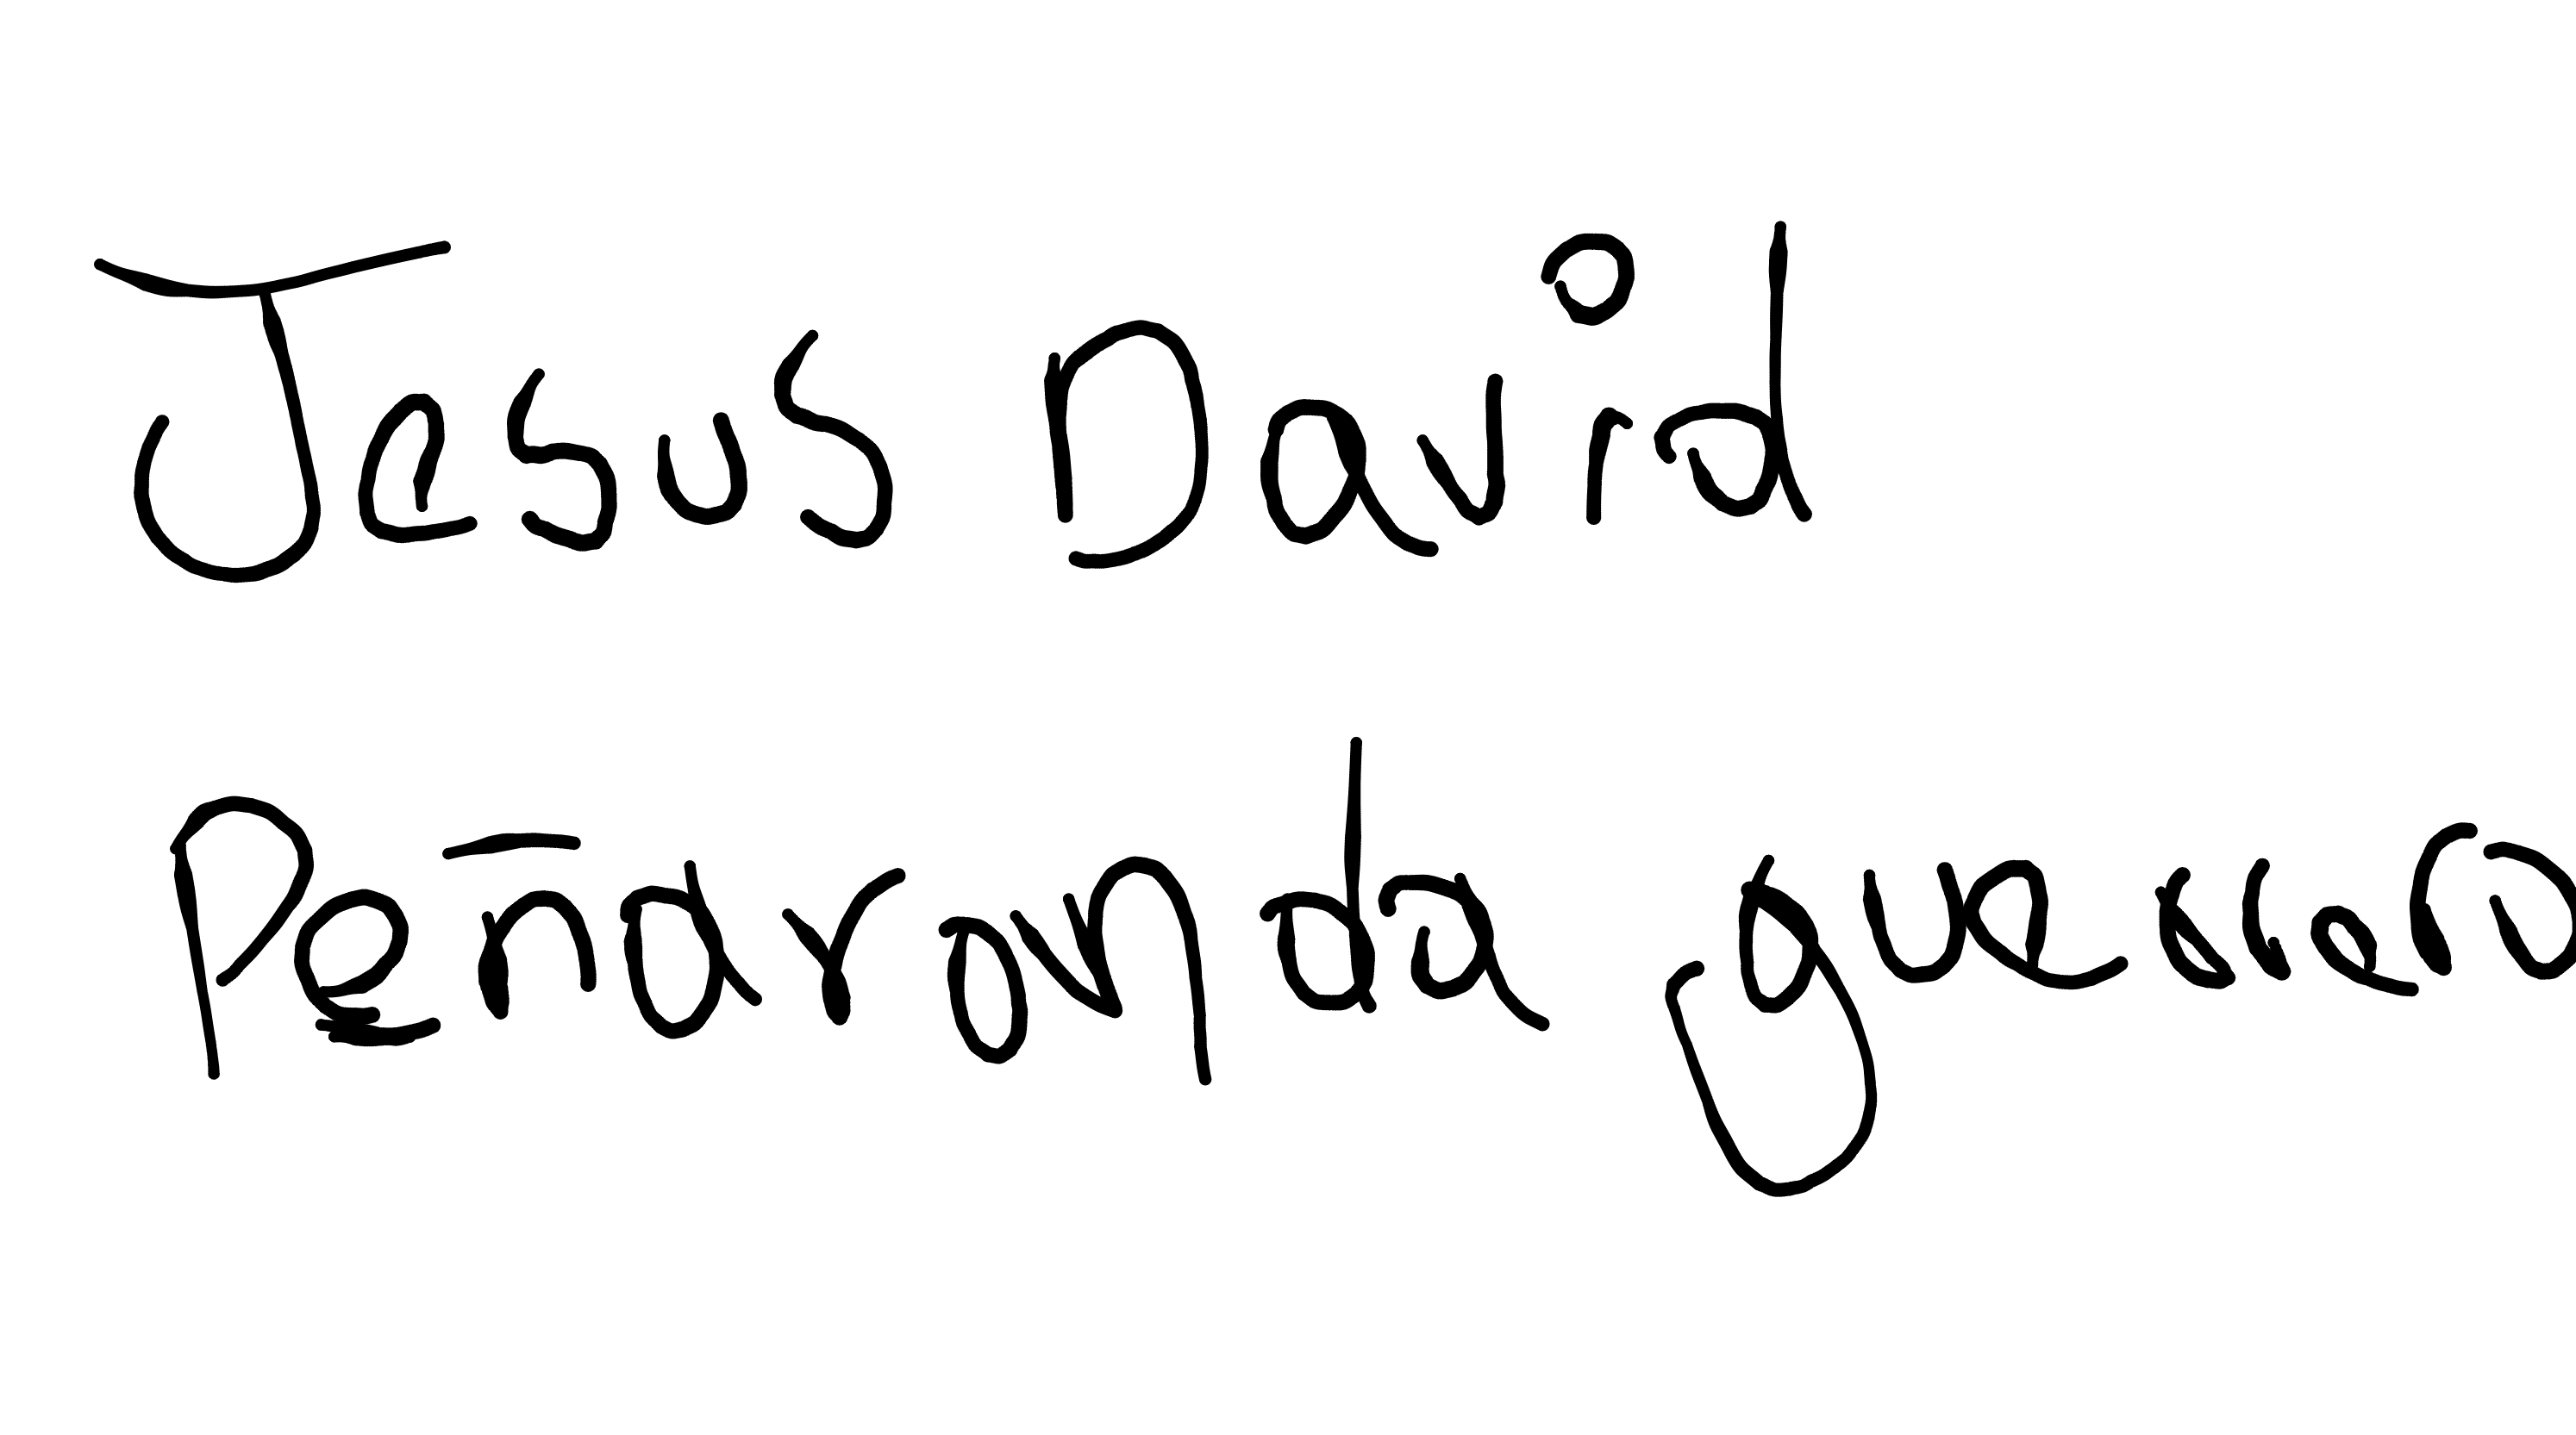 Jesus David
Peñaronda guerrero